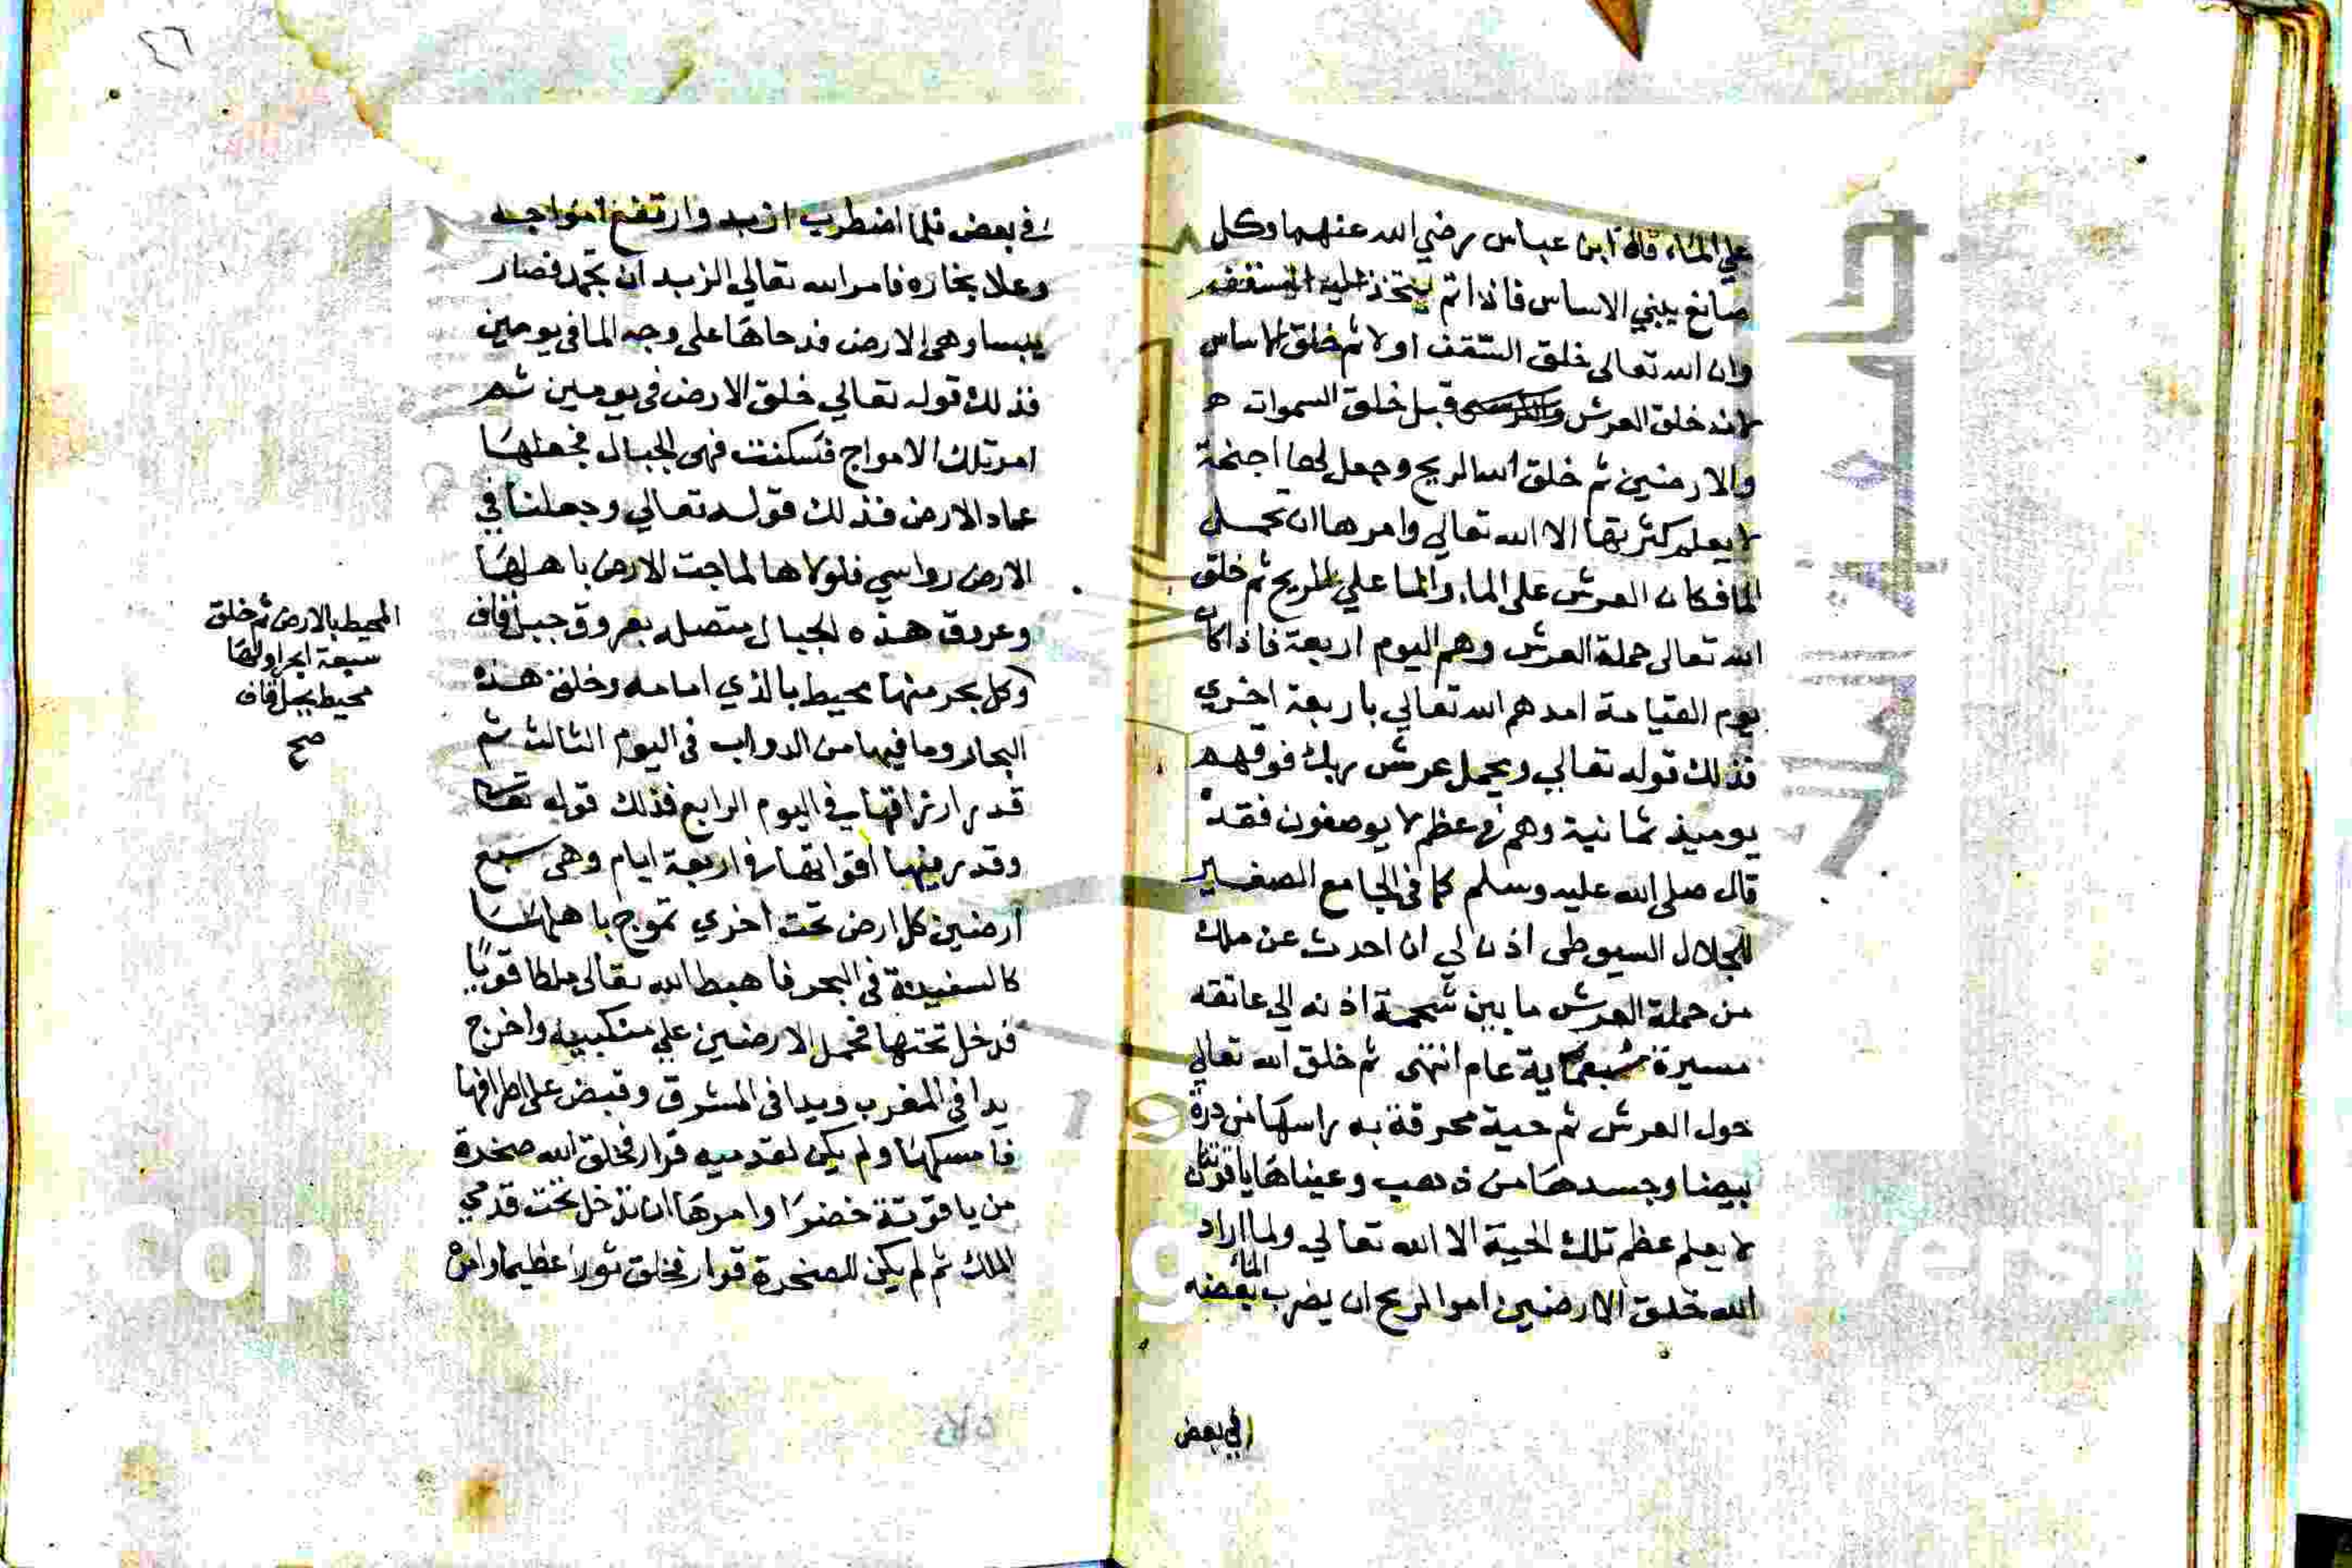 علي الماء قاله ابن عباس رضي الله عنهما وكل
صانع يبني الاساس فاذا اتم يتخذ عليه السقف
وان الله تعالى خلق السقف اولا ثم خلق الاساس
لانه خلق العرش والكرسي قبل خلق السموات
والارضين ثم خلق الله الريح وجعل لها اجنحة
لا يعلم كثرتها الا الله تعالي وامرها ان تحمل
الما فكان العرش على الماء والما علي الريح ثم خلق
الله تعالى حملة العرش وهم اليوم اربعة فاذا كان
يوم القيامة امدهم الله تعالي باربعة اخري
فذلك قوله تعالي ويحمل عرش ربك فوقهم
يوميذ ثمانية وهم في عظم لا يوصفون فقد
قال صلى الله عليه وسلم كما في الجامع الصغير
للجلال السيوطي اذن لي ان احدث عن ملك
من حملة العرش ما بين شحمة اذنه الي عاتقه
مسيرة سبعماية عام انتهى ثم خلق الله تعالي
حول العرش ثم حية محرقة به راسها من درة
بيضا وجسدها من ذهب وعيناها ياقوتتان
لا يعلم عظم تلك الحية الا الله تعالي ولما اراد
الله خلق الارضين امر الريح ان يضرب الماء بعضه
في بعض
٤٦
في بعض فلما اضطرب ازبد وارتفع امواجه
وعلا بخاره فامر الله تعالي الزبد ان يجمد فصار
يبسا وهي الارض فدحاها على وجه الما في يومين
فذلك قوله تعالي خلق الارض في يومين ثم
امر تلك الامواج فسكنت فهي الجبال فجعلها
عماد الارض فذلك قوله تعالي وجعلنا في
الارض رواسي فلولاها لماجت الارض باهلها
وعروق هذه الجبال متصله بعروق جبل قاف
المحيط بالارض ثم خلق
سبعة ابحر اولها
محيط بجبل قاف
صح
وكل بحر منها محيط بالذي امامه وخلق هذه
البحار وما فيها من الدواب في اليوم الثالث ثم
قدر ارزاقها في اليوم الرابع فذلك قوله تعالى
وقدر فيها اقواتها في اربعة ايام وهي سبع
ارضين كل ارض تحت اخري تموج باهلها
كالسفينة في البحر فاهبط الله تعالى ملكا قويا
فدخل تحتها فحمل الارضين علي منكبيه واخرج
يدا في المغرب ويدا في المشرق وقبض على اطرافها
فامسكها ولم يكن لقدميه قرار فخلق الله صخرة
من ياقوتة خضرا وامرها ان تدخل تحت قدمي
الملك ثم لم يكن للصخرة قرار فخلق ثورا عظيما وامره